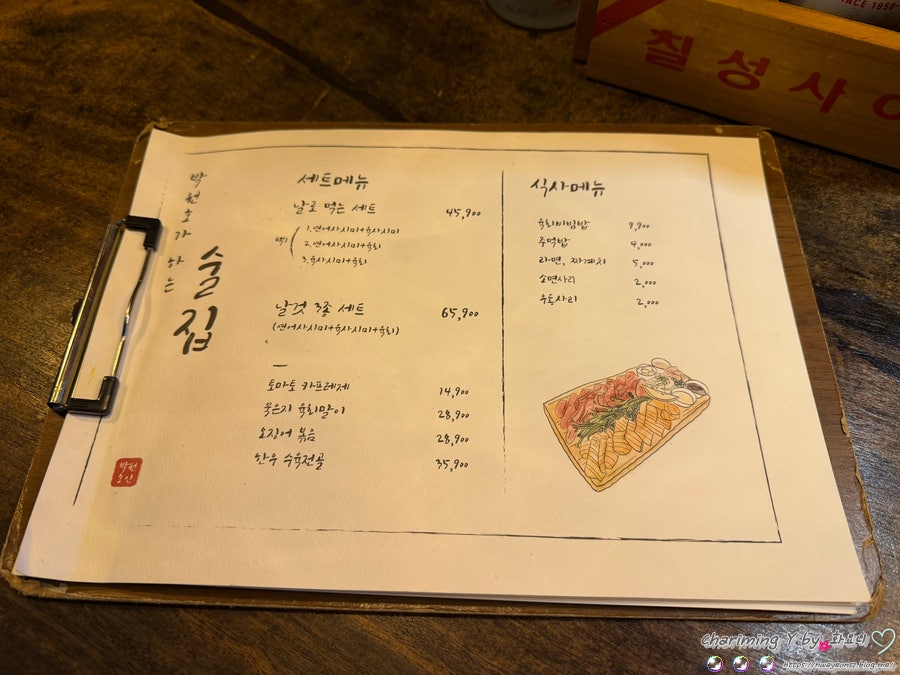 SINCE 1958
칠성사이
박천호가 하는
술집
세트메뉴
날로 먹는 세트 45,900
택1
1.연어사시미+육사시미
2.연어사시미+육회
3.육사시미+육회
날것 3종 세트 65,900
(연어사시미+육사시미+육회)
토마토 카프레제 14,900
묵은지 육회말이 28,900
오징어 볶음 28,900
한우 수육전골 35,900
식사메뉴
육회비빔밥 9,900
주먹밥 4,000
라면, 짜계치 5,000
소면사리 2,000
우동사리 2,000
Chariming Y by 화오니